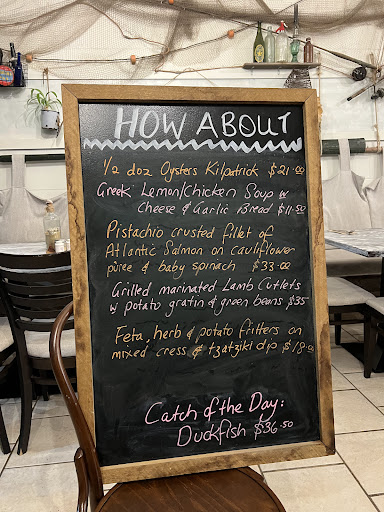 HOW ABOUT
1/2 doz Oysters Kilpatrick $21.00
Greek Lemon/Chicken Soup w
Cheese & Garlic Bread $11.50
Pistachio crusted fillet of
Atlantic Salmon on cauliflower
puree & baby spinach $33.00
Grilled marinated Lamb Cutlets
w potato gratin & green beans $35
Feta, herb & potato fritters on
mixed cress & tzatziki dip $18.00
Catch of the Day:
Duckfish $36.50